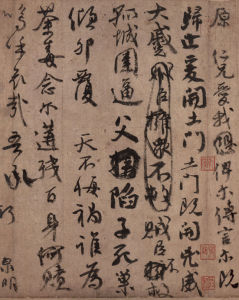 原 仁兄愛我俾尔傳言尔既
歸止爰開土門土門既開凶威
大蹙賊臣擁衆不救賊臣不救
孤城圍逼父陷子死巢
傾卵覆 天不悔禍誰為
荼毒念尔遘殘百身何贖
嗚乎哀哉吾承
泉明